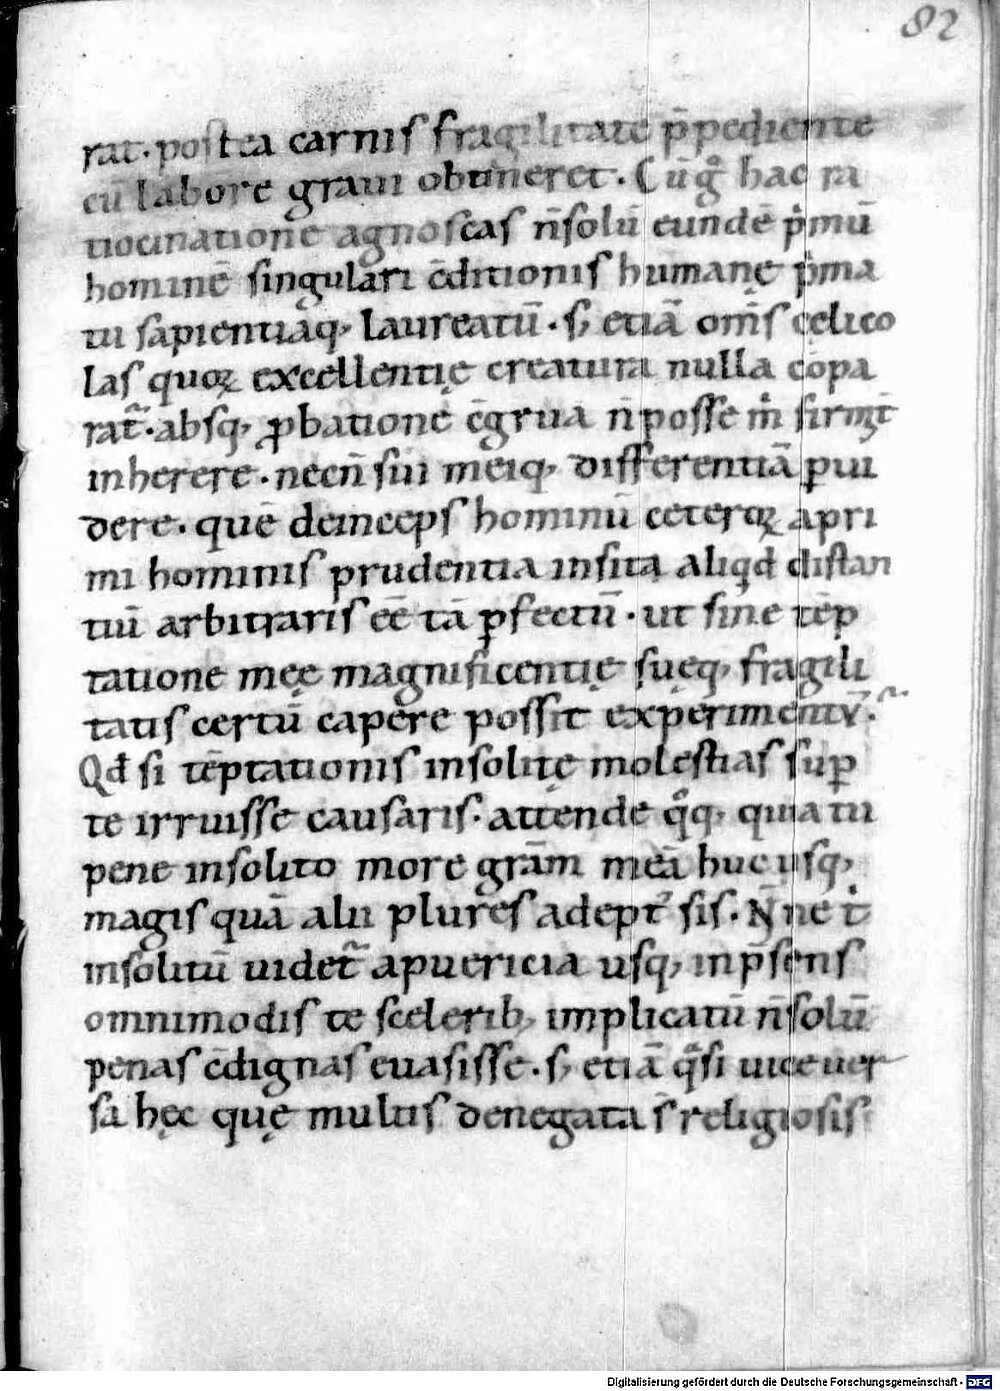 82
rat. postea carnis fragilitate p̄pediente
cū labore graui obtineret. Cūgͦ hac ra
tiocinatione agnoscas n̄solū eundē pͥmū
hominē singulari c̄ditionis humanę pͥma
tu sapientiāq; laureatū. s; etiā om̄s cęlico
las quoꝝ excellentię creatura nulla cōpa
rat̄. absq; ꝓbatione c̄grua n̄ posse mͥ firmit̄
inherere. necn̄ sui meiq; differentiā ꝑui
dere. quē deinceps hominū ceteroꝝ a pri
mi hominis prudentia insita aliqd̄ distan
tiū arbitraris eē tā ꝑfectū. ut sine tēp
tatione meę magnificentię suęq; fragili
tatis certū capere possit experimentū.
Qd̄ si tēptationis insolitę molestias suꝑ
te irruisse causaris. attende qͦq; quia tu
pene insolito more grām meā huc usq;
magis quā alii plures adept᾽ sis. N̄ne tͥ
insolitū uidet̄ a puericia usq; in p̄sens
omnimodis te scelerib; implicatū n̄solū
penas c̄dignas euasisse. s; etiā qͣsi uice uer
sa hęc quę multis denegata s̄ religiosis
Digitalisierung gefördert durch die Deutsche Forschungsgemeinschaft - DFG